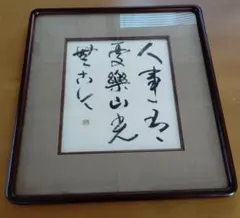 人事有
憂樂山光
無古今